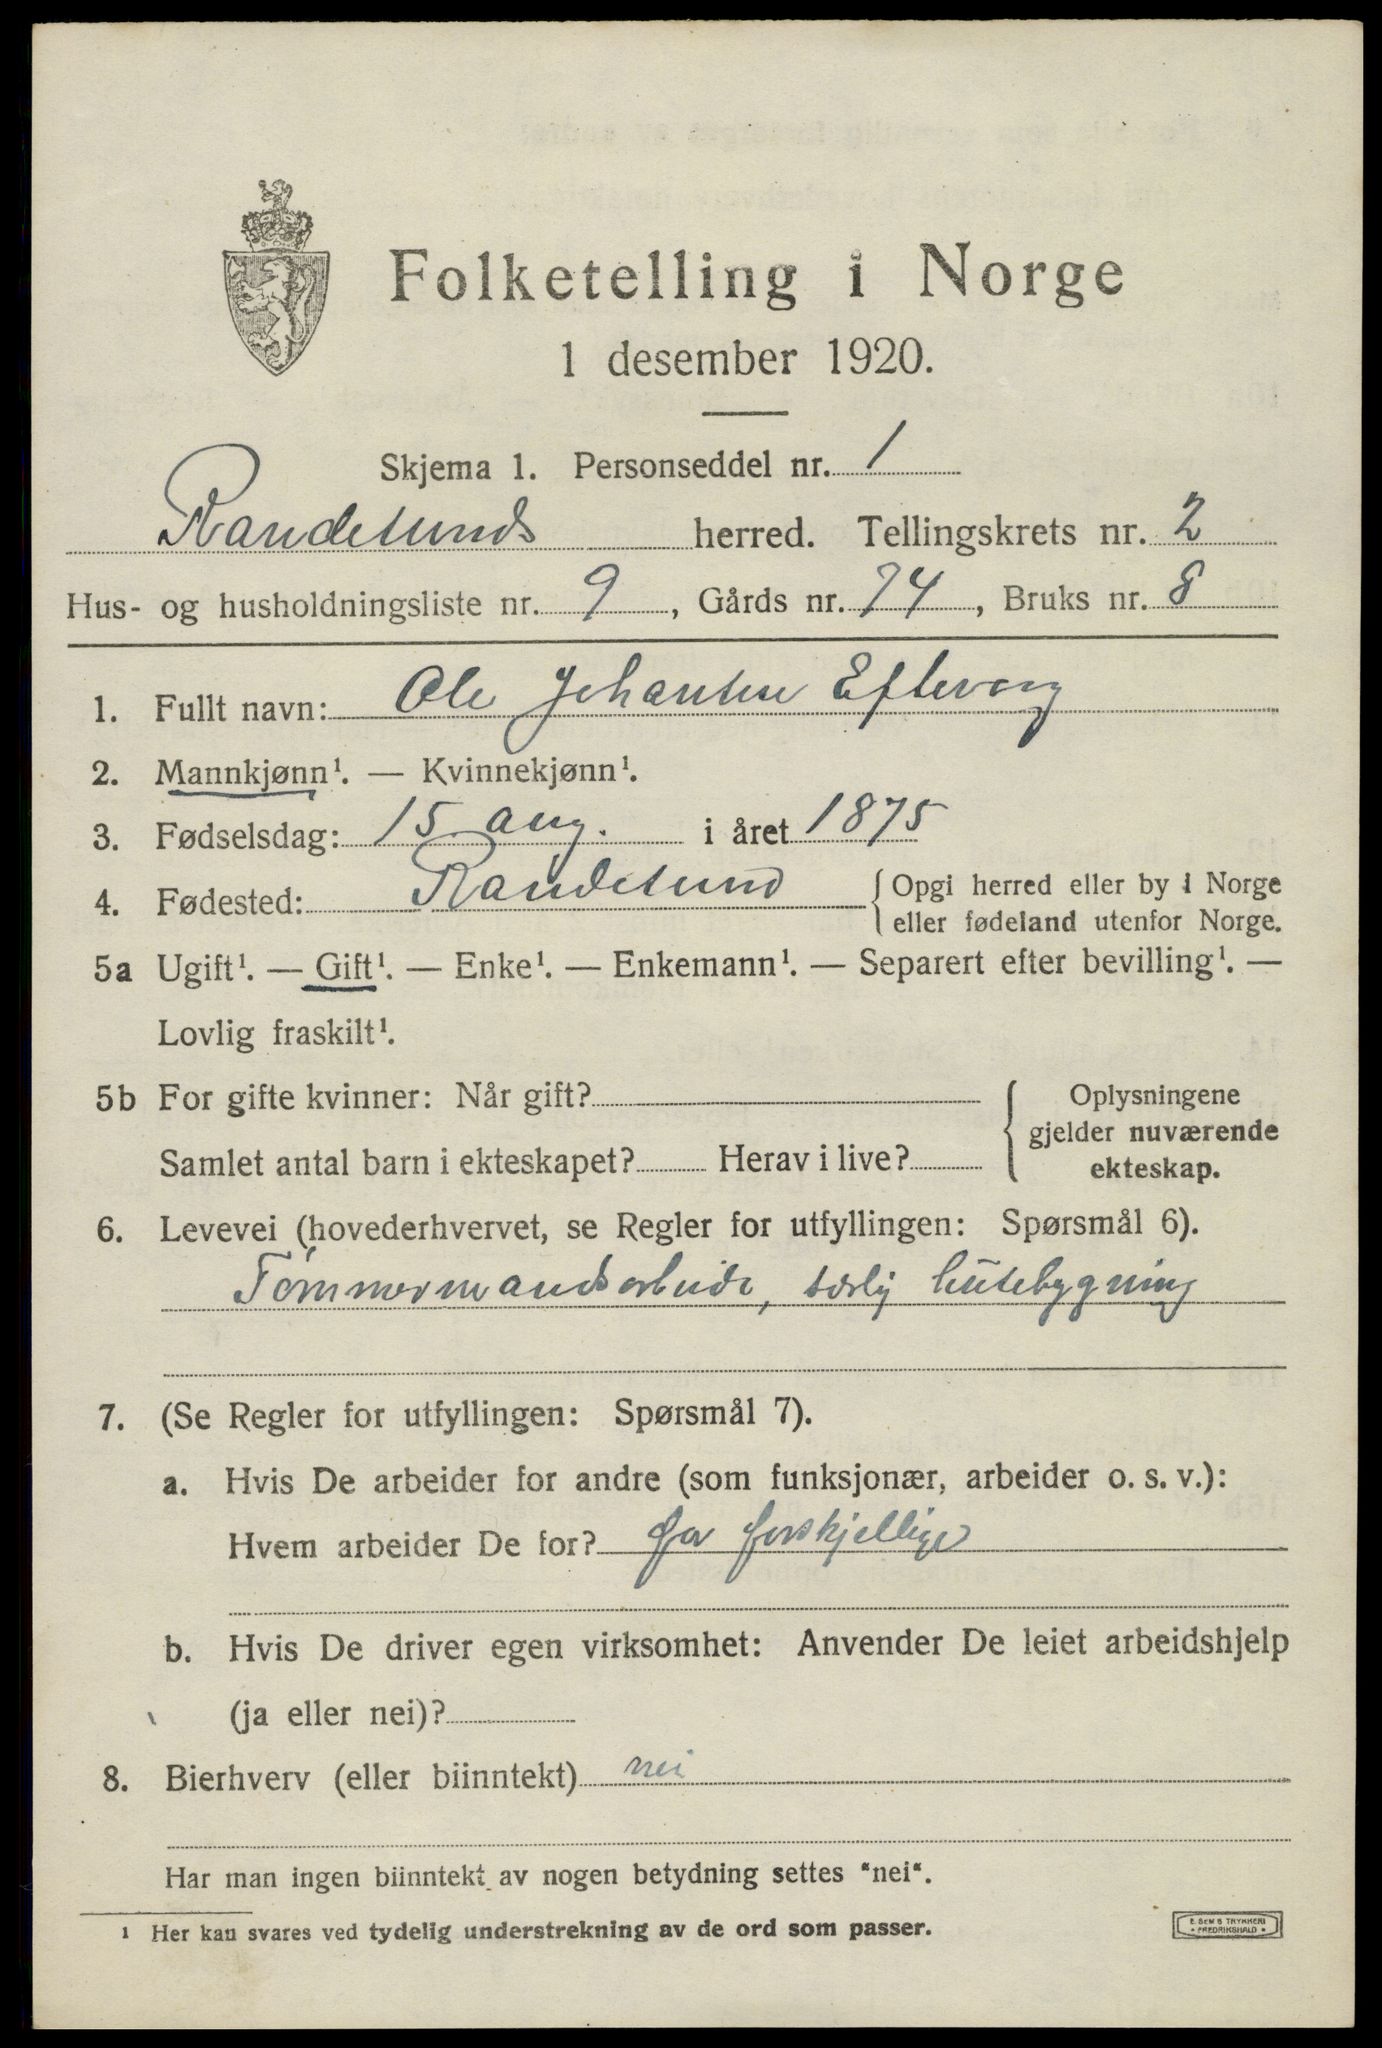 Folketelling i Norge
1 desember 1920.
Skjema 1. Personseddel nr. 1
Randesunds herred. Tellingskrets nr. 2
Hus- og husholdningsliste nr. 9, Gårds nr. 74, Bruks nr. 8
1. Fullt navn: Ole Johansen Eftevaag
2. Mannkjønn¹. — Kvinnekjønn¹.
3. Fødselsdag: 15 aug. i året 1875
4. Fødested: Randesund {Opgi herred eller by i Norge
eller fødeland utenfor Norge.
5a Ugift¹. — Gift¹. — Enke¹. — Enkemann¹. — Separert efter bevilling¹. —
Lovlig fraskilt¹.
5b For gifte kvinner: Når gift? { Oplysningene
gjelder nuværende
Samlet antal barn i ekteskapet? Herav i live?
ekteskap.
6. Levevei (hovederhvervet, se Regler for utfyllingen: Spørsmål 6).
Tømmermandsarbeide, særlig husebygning
7. (Se Regler for utfyllingen: Spørsmål 7).
a. Hvis De arbeider for andre (som funksjonær, arbeider o. s. v.):
Hvem arbeider De for? for forskjellige
b. Hvis De driver egen virksomhet: Anvender De leiet arbeidshjelp
(ja eller nei)?
8. Bierhverv (eller biinntekt) nei
Har man ingen biinntekt av nogen betydning settes "nei".
¹ Her kan svares ved tydelig understrekning av de ord som passer.
E. SEM S TRYKKERI
* FREDRIKSHALD *